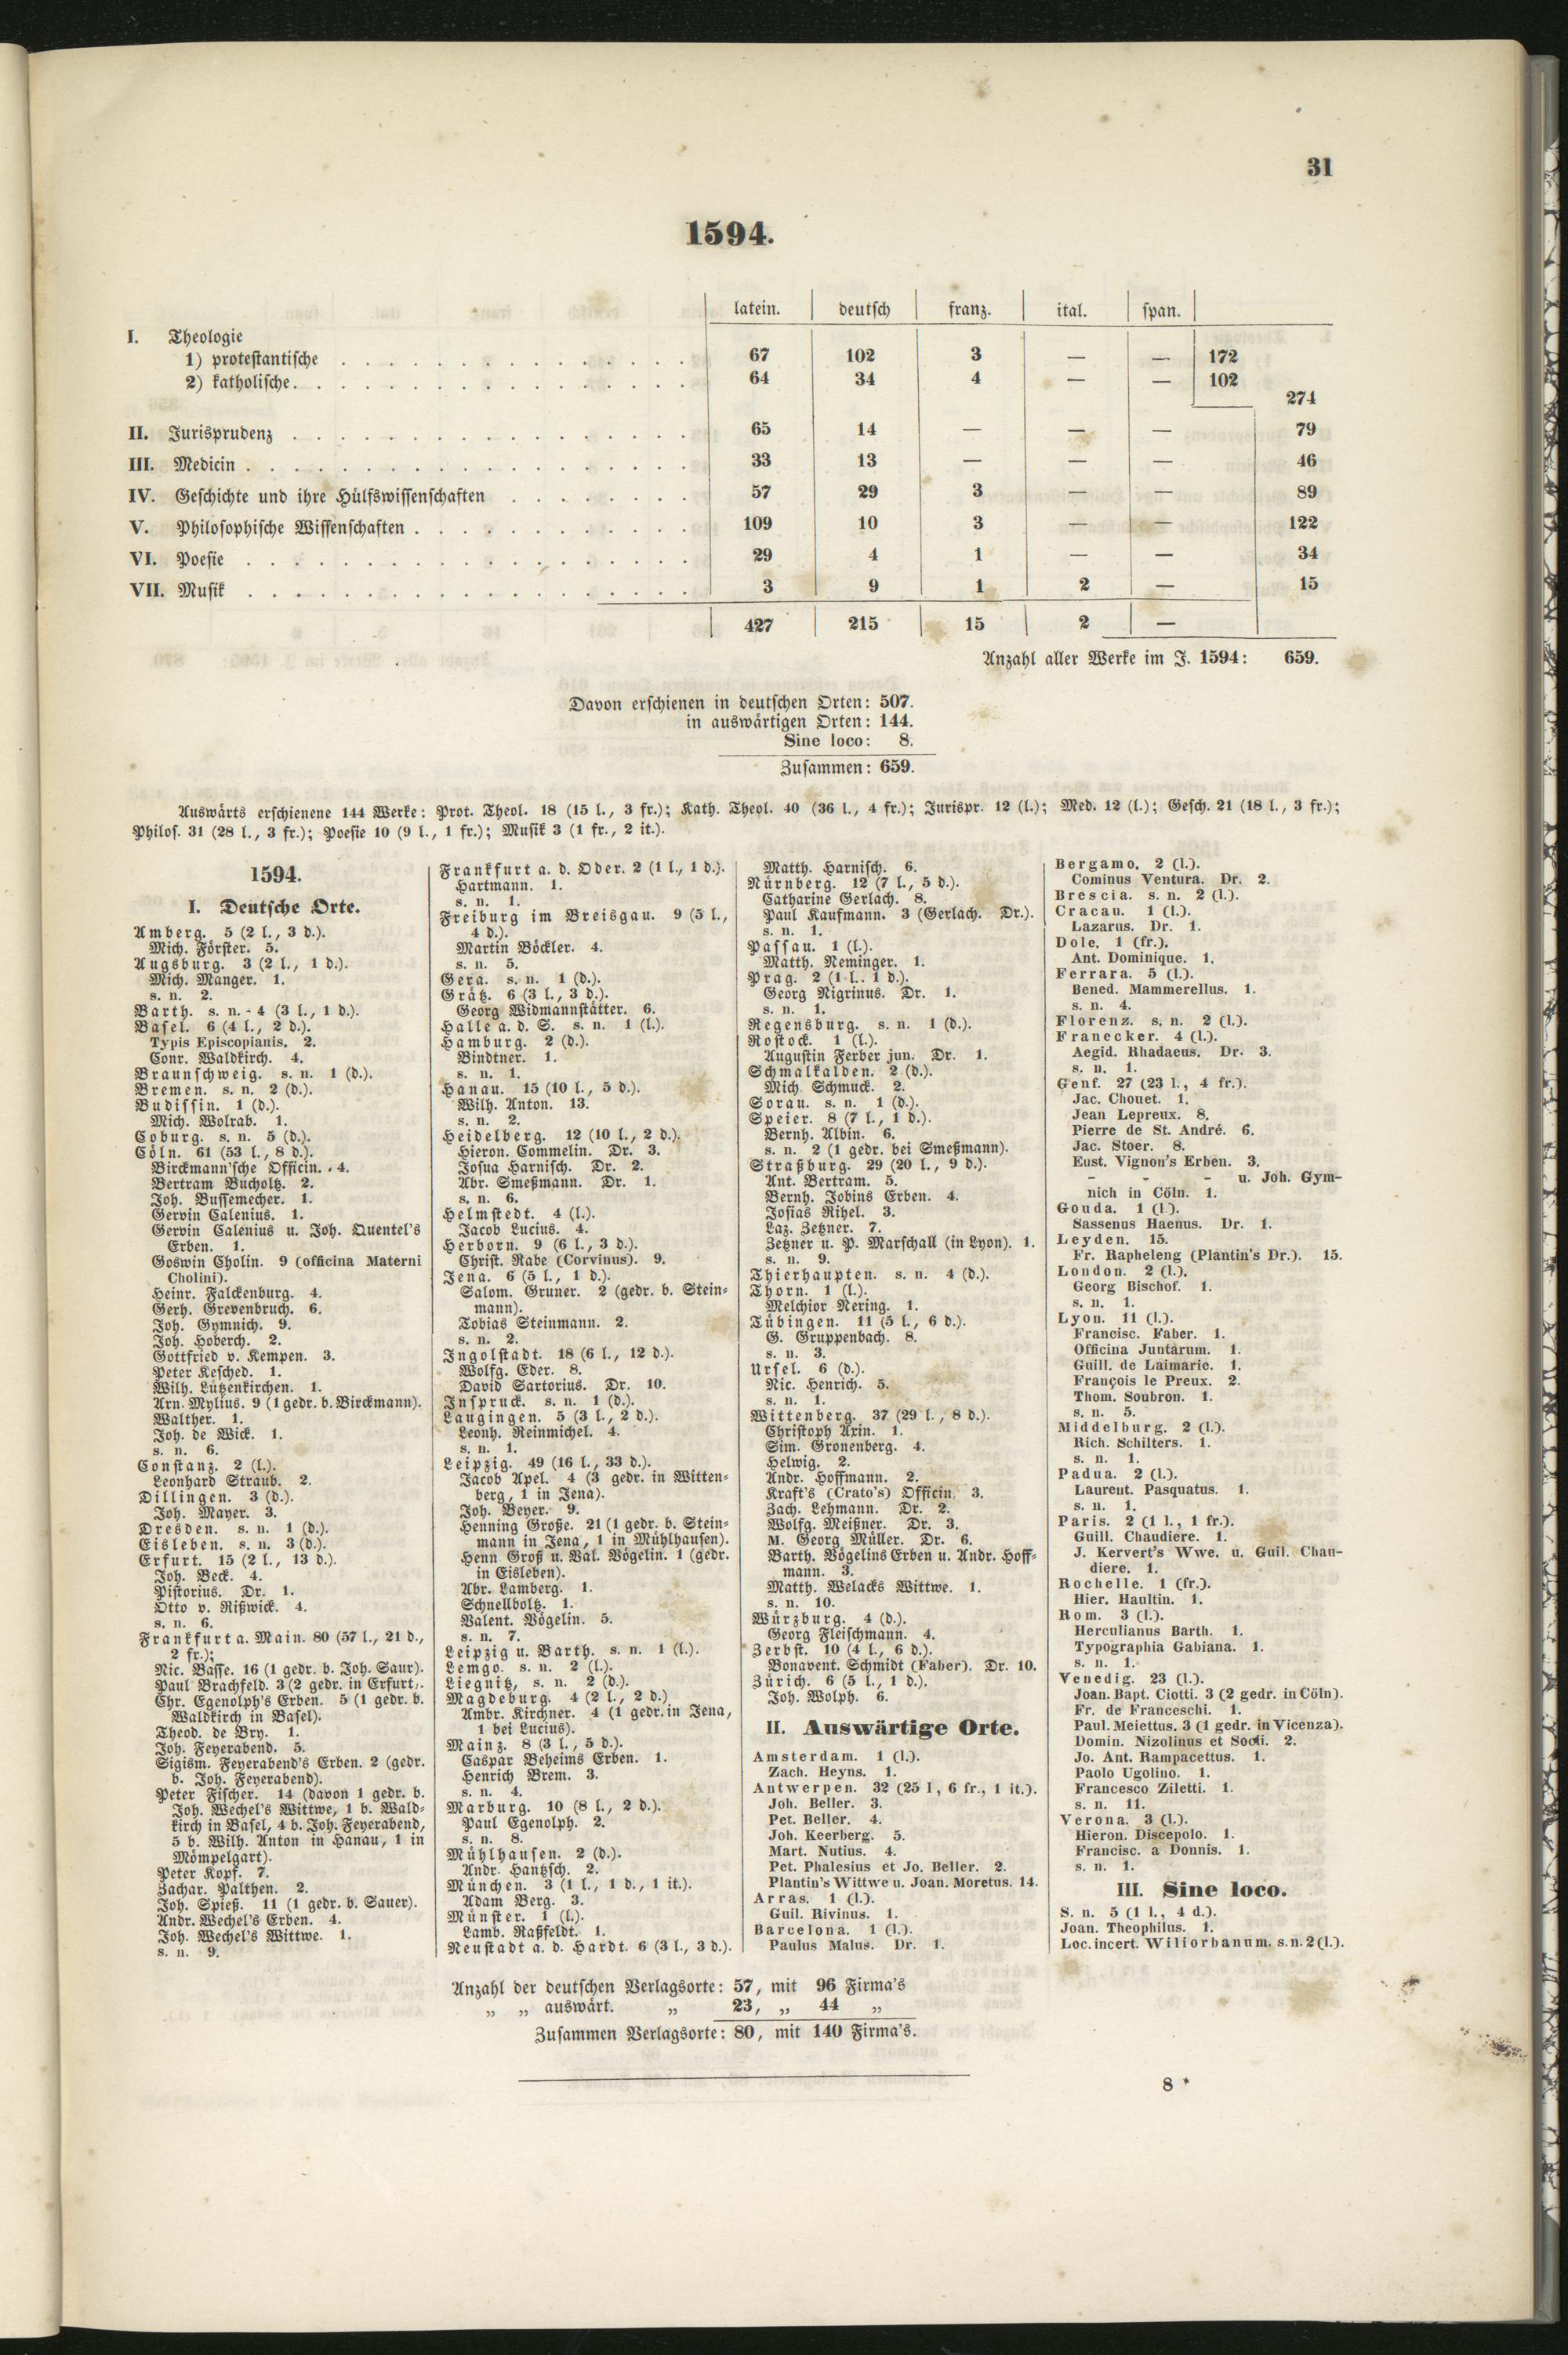 31
1594.
latein. deutsch franz. ital. span.
I. Theologie
1) protestantische . . . . . . . . . . . . . . . 67 102 3 — — 172
2) katholische. . . . . . . . . . . . . . . . . 64 34 4 — — 102
274
II. Jurisprudenz . . . . . . . . . . . . . . . . . 65 14 — — — 79
III. Medicin . . . . . . . . . . . . . . . . . . . 33 13 — — — 46
IV. Geschichte und ihre Hülfswissenschaften . . . . . . . . 57 29 3 — — 89
V. Philosophische Wissenschaften . . . . . . . . . . . . 109 10 3 — — 122
VI. Poesie . . . . . . . . . . . . . . . . . . . 29 4 1 — — 34
VII. Musik . . . . . . . . . . . . . . . . . . . 3 9 1 2 — 15
427 215 15 2 —
Anzahl aller Werke im J. 1594: 659.
Davon erschienen in deutschen Orten: 507.
in auswärtigen Orten: 144.
Sine loco: 8.
Zusammen: 659.
Auswärts erschienene 144 Werke: Prot. Theol. 18 (15 l., 3 fr.); Kath. Theol. 40 (36 l., 4 fr.); Jurispr. 12 (l.); Med. 12 (l.); Gesch. 21 (18 l., 3 fr.);
Philos. 31 (28 l., 3 fr.); Poesie 10 (9 l., 1 fr.); Musik 3 (1 fr., 2 it.).
1594.
I. Deutsche Orte.
Amberg. 5 (2 l., 3 d.).
Mich. Förster. 5.
Augsburg. 3 (2 l., 1 d.).
Mich. Manger. 1.
s. n. 2.
Barth. s. n. 4 (3 l., 1 d.).
Basel. 6 (4 l., 2 d.).
Typis Episcopianis. 2.
Conr. Waldkirch. 4.
Braunschweig. s. n. 1 (d.).
Bremen. s. n. 2 (d.).
Budissin. 1 (d.).
Mich. Wolrab. 1.
Coburg. s. n. 5 (d.).
Cöln. 61 (53 l., 8 d.).
Birckmann'sche Officin. 4.
Bertram Bucholtz. 2.
Joh. Bussemecher. 1.
Gervin Calenius. 1.
Gervin Calenius u. Joh. Quentel's
Erben. 1.
Goswin Cholin. 9 (officina Materni
Cholini).
Heinr. Falckenburg. 4.
Gerh. Grevenbruch. 6.
Joh. Gymnich. 9.
Joh. Hoberch. 2.
Gottfried v. Kempen. 3.
Peter Kesched. 1.
Wilh. Lützenkirchen. 1.
Arn. Mylius. 9 (1 gedr. b. Birckmann).
Walther. 1.
Joh. de Wick. 1.
s. n. 6.
Constanz. 2 (l.).
Leonhard Straub. 2.
Dillingen. 3 (d.).
Joh. Mayer. 3.
Dresden. s. n. 1 (d.).
Eisleben. s. n. 3 (d.).
Erfurt. 15 (2 l., 13 d.).
Joh. Beck. 4.
Pistorius. Dr. 1.
Otto v. Rißwick. 4.
s. n. 6.
Frankfurt a. Main. 80 (57 l., 21 d.,
2 fr.);
Nic. Basse. 16 (1 gedr. b. Joh. Saur).
Paul Brachfeld. 3 (2 gedr. in Erfurt).
Chr. Egenolph's Erben. 5 (1 gedr. b.
Waldkirch in Basel).
Theod. de Bry. 1.
Joh. Feyerabend. 5.
Sigism. Feyerabend's Erben. 2 (gedr.
b. Joh. Feyerabend).
Peter Fischer. 14 (davon 1 gedr. b.
Joh. Wechel's Wittwe, 1 b. Wald-
kirch in Basel, 4 b. Joh. Feyerabend,
5 b. Wilh. Anton in Hanau, 1 in
Mömpelgart).
Peter Kopf. 7.
Zachar. Palthen. 2.
Joh. Spieß. 11 (1 gedr. b. Sauer).
Andr. Wechel's Erben. 4.
Joh. Wechel's Wittwe. 1.
s. n. 9.
Frankfurt a. d. Oder. 2 (1 l., 1 d.).
Hartmann. 1.
s. n. 1.
Freiburg im Breisgau. 9 (5 l.,
4 d.).
Martin Böckler. 4.
s. n. 5.
Gera. s. n. 1 (d.).
Grätz. 6 (3 l., 3 d.).
Georg Widmannstätter. 6.
Halle a. d. S. s. n. 1 (l.).
Hamburg. 2 (d.).
Bindtner. 1.
s. n. 1.
Hanau. 15 (10 l., 5 d.).
Wilh. Anton. 13.
s. n. 2.
Heidelberg. 12 (10 l., 2 d.).
Hieron. Commelin. Dr. 3.
Josua Harnisch. Dr. 2.
Abr. Smeßmann. Dr. 1.
s. n. 6.
Helmstedt. 4 (l.).
Jacob Lucius. 4.
Herborn. 9 (6 l., 3 d.).
Christ. Rabe (Corvinus). 9.
Jena. 6 (5 l., 1 d.).
Salom. Gruner. 2 (gedr. b. Stein-
mann).
Tobias Steinmann. 2.
s. n. 2.
Ingolstadt. 18 (6 l., 12 d.).
Wolfg. Eder. 8.
David Sartorius. Dr. 10.
Inspruck. s. n. 1 (d.).
Laugingen. 5 (3 l., 2 d.).
Leonh. Reinmichel. 4.
s. n. 1.
Leipzig. 49 (16 l., 33 d.).
Jacob Apel. 4 (3 gedr. in Witten-
berg, 1 in Jena).
Joh. Beyer. 9.
Henning Große. 21 (1 gedr. b. Stein-
mann in Jena, 1 in Mühlhausen).
Henn Groß u. Val. Vögelin. 1 (gedr.
in Eisleben).
Abr. Lamberg. 1.
Schnellboltz. 1.
Valent. Vögelin. 5.
s. n. 7.
Leipzig u. Barth. s. n. 1 (l.).
Lemgo. s. n. 2 (l.).
Liegnitz, s. n. 2 (d.).
Magdeburg. 4 (2 l., 2 d.)
Ambr. Kirchner. 4 (1 gedr. in Jena,
1 bei Lucius).
Mainz. 8 (3 l., 5 d.).
Caspar Beheims Erben. 1.
Henrich Brem. 3.
s. n. 4.
Marburg. 10 (8 l., 2 d.).
Paul Egenolph. 2.
s. n. 8.
Mühlhausen. 2 (d.).
Andr. Hantzsch. 2.
München. 3 (1 l., 1 d., 1 it.).
Adam Berg. 3.
Münster. 1 (l.).
Lamb. Raßfeldt. 1.
Neustadt a. d. Hardt. 6 (3 l., 3 d.).
Matth. Harnisch. 6.
Nürnberg. 12 (7 l., 5 d.).
Catharine Gerlach. 8.
Paul Kaufmann. 3 (Gerlach. Dr.).
s. n. 1.
Passau. 1 (l.).
Matth. Neminger. 1.
Prag. 2 (1 l.. 1 d.).
Georg Nigrinus. Dr. 1.
s. n. 1.
Regensburg. s. n. 1 (d.).
Rostock. 1 (l.).
Augustin Ferber jun. Dr. 1.
Schmalkalden. 2 (d.).
Mich. Schmuck. 2.
Sorau. s. n. 1 (d.).
Speier. 8 (7 l., 1 d.).
Bernh. Albin. 6.
s. n. 2 (1 gedr. bei Smeßmann).
Straßburg. 29 (20 l., 9 d.).
Ant. Bertram. 5.
Bernh. Jobins Erben. 4.
Josias Rihel. 3.
Laz. Zetzner. 7.
Zetzner u. P. Marschall (in Lyon). 1.
s. n. 9.
Thierhaupten. s. n. 4 (d.).
Thorn. 1 (l.).
Melchior Nering. 1.
Tübingen. 11 (5 l., 6 d.).
G. Gruppenbach. 8.
s. n. 3.
Ursel. 6 (d.).
Nic. Henrich. 5.
s. n. 1.
Wittenberg. 37 (29 l., 8 d.).
Christoph Axin. 1.
Sim. Gronenberg. 4.
Helwig. 2.
Andr. Hoffmann. 2.
Kraft's (Crato's) Officin. 3.
Zach. Lehmann. Dr. 2.
Wolfg. Meißner. Dr. 3.
M. Georg Müller. Dr. 6.
Barth. Vögelins Erben u. Andr. Hoff-
mann. 3.
Matth. Welacks Wittwe. 1.
s. n. 10.
Würzburg. 4 (d.).
Georg Fleischmann. 4.
Zerbst. 10 (4 l., 6 d.).
Bonavent. Schmidt (Faber). Dr. 10.
Zürich. 6 (5 l., 1 d.).
Joh. Wolph. 6.
II. Auswärtige Orte.
Amsterdam. 1 (l.).
Zach. Heyns. 1.
Antwerpen. 32 (25 l, 6 fr., 1 it.).
Joh. Beller. 3.
Pet. Beller. 4.
Joh. Keerberg. 5.
Mart. Nutius. 4.
Pet. Phalesius et Jo. Beller. 2.
Plantin's Wittwe u. Joan. Moretus. 14.
Arras. 1 (l.).
Guil. Rivinus. 1.
Barcelona. 1 (l.).
Paulus Malus. Dr. 1.
Bergamo. 2 (l.).
Cominus Ventura. Dr. 2.
Brescia. s. n. 2 (l.).
Cracau. 1 (l.).
Lazarus. Dr. 1.
Dole. 1 (fr.).
Ant. Dominique. 1.
Ferrara. 5 (l.).
Bened. Mammerellus. 1.
s. n. 4.
Florenz. s. n. 2 (l.).
Franecker. 4 (l.).
Aegid. Rhadaeus. Dr. 3.
s. n. 1.
Genf. 27 (23 l., 4 fr.).
Jac. Chouet. 1.
Jean Lepreux. 8.
Pierre de St. André. 6.
Jac. Stoer. 8.
Eust. Vignon's Erben. 3.
- - - u. Joh. Gym-
nich in Cöln. 1.
Gouda. 1 (l.).
Sassenus Haenus. Dr. 1.
Leyden. 15.
Fr. Rapheleng (Plantin's Dr.). 15.
London. 2 (l.).
Georg Bischof. 1.
s. n. 1.
Lyon. 11 (l.).
Francisc. Faber. 1.
Officina Juntarum. 1.
Guill. de Laimarie. 1.
François le Preux. 2.
Thom. Soubron. 1.
s. n. 5.
Middelburg. 2 (l.).
Rich. Schilters. 1.
s. n. 1.
Padua. 2 (l.).
Laurent. Pasquatus. 1.
s. n. 1.
Paris. 2 (1 l., 1 fr.).
Guill. Chaudiere. 1.
J. Kervert's Wwe. u. Guil. Chau-
diere. 1.
Rochelle. 1 (fr.).
Hier. Haultin. 1.
Rom. 3 (l.).
Herculianus Barth. 1.
Typographia Gabiana. 1.
s. n. 1.
Venedig. 23 (l.).
Joan. Bapt. Ciotti. 3 (2 gedr. in Cöln).
Fr. de Franceschi. 1.
Paul. Meiettus. 3 (1 gedr. in Vicenza).
Domin. Nizolinus et Socii. 2.
Jo. Ant. Rampacettus. 1.
Paolo Ugolino. 1.
Francesco Ziletti. 1.
s. n. 11.
Verona. 3 (l.).
Hieron. Discepolo. 1.
Francisc. a Donnis. 1.
s. n. 1.
III. Sine loco.
S. n. 5 (1 l., 4 d.).
Joan. Theophilus. 1.
Loc. incert. Wiliorbanum. s. n. 2 (l.).
Anzahl der deutschen Verlagsorte: 57, mit 96 Firma's
„ „ auswärt. „ 23, „ 44 „
Zusammen Verlagsorte: 80, mit 140 Firma's.
8 *